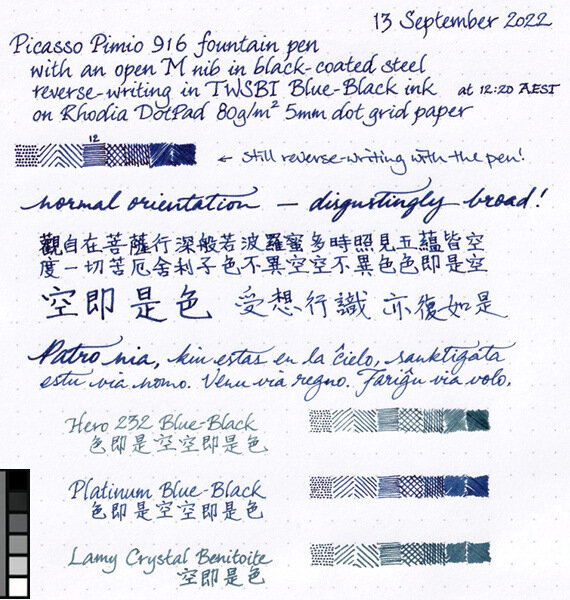 13 September 2022
Picasso Pimio 916 fountain pen
with an open M nib in black-coated steel
reverse-writing in TWSBI Blue-Black ink at 12:20 AEST
on Rhodia DotPad 80g/m² 5mm dot grid paper
12
← still reverse-writing with the pen!
normal orientation — disgustingly broad!
觀自在菩薩行深般若波羅蜜多時照見五蘊皆空
度一切苦厄舍利子色不異空空不異色色即是空
空即是色 受想行識 亦復如是
Patro nia, kiu estas en la ĉielo, sanktigata
estu via nomo. Venu via regno. Fariĝu via volo,
Hero 232 Blue-Black
色即是空空即是色
Platinum Blue-Black
色即是空空即是色
Lamy Crystal Benitoite
空即是色